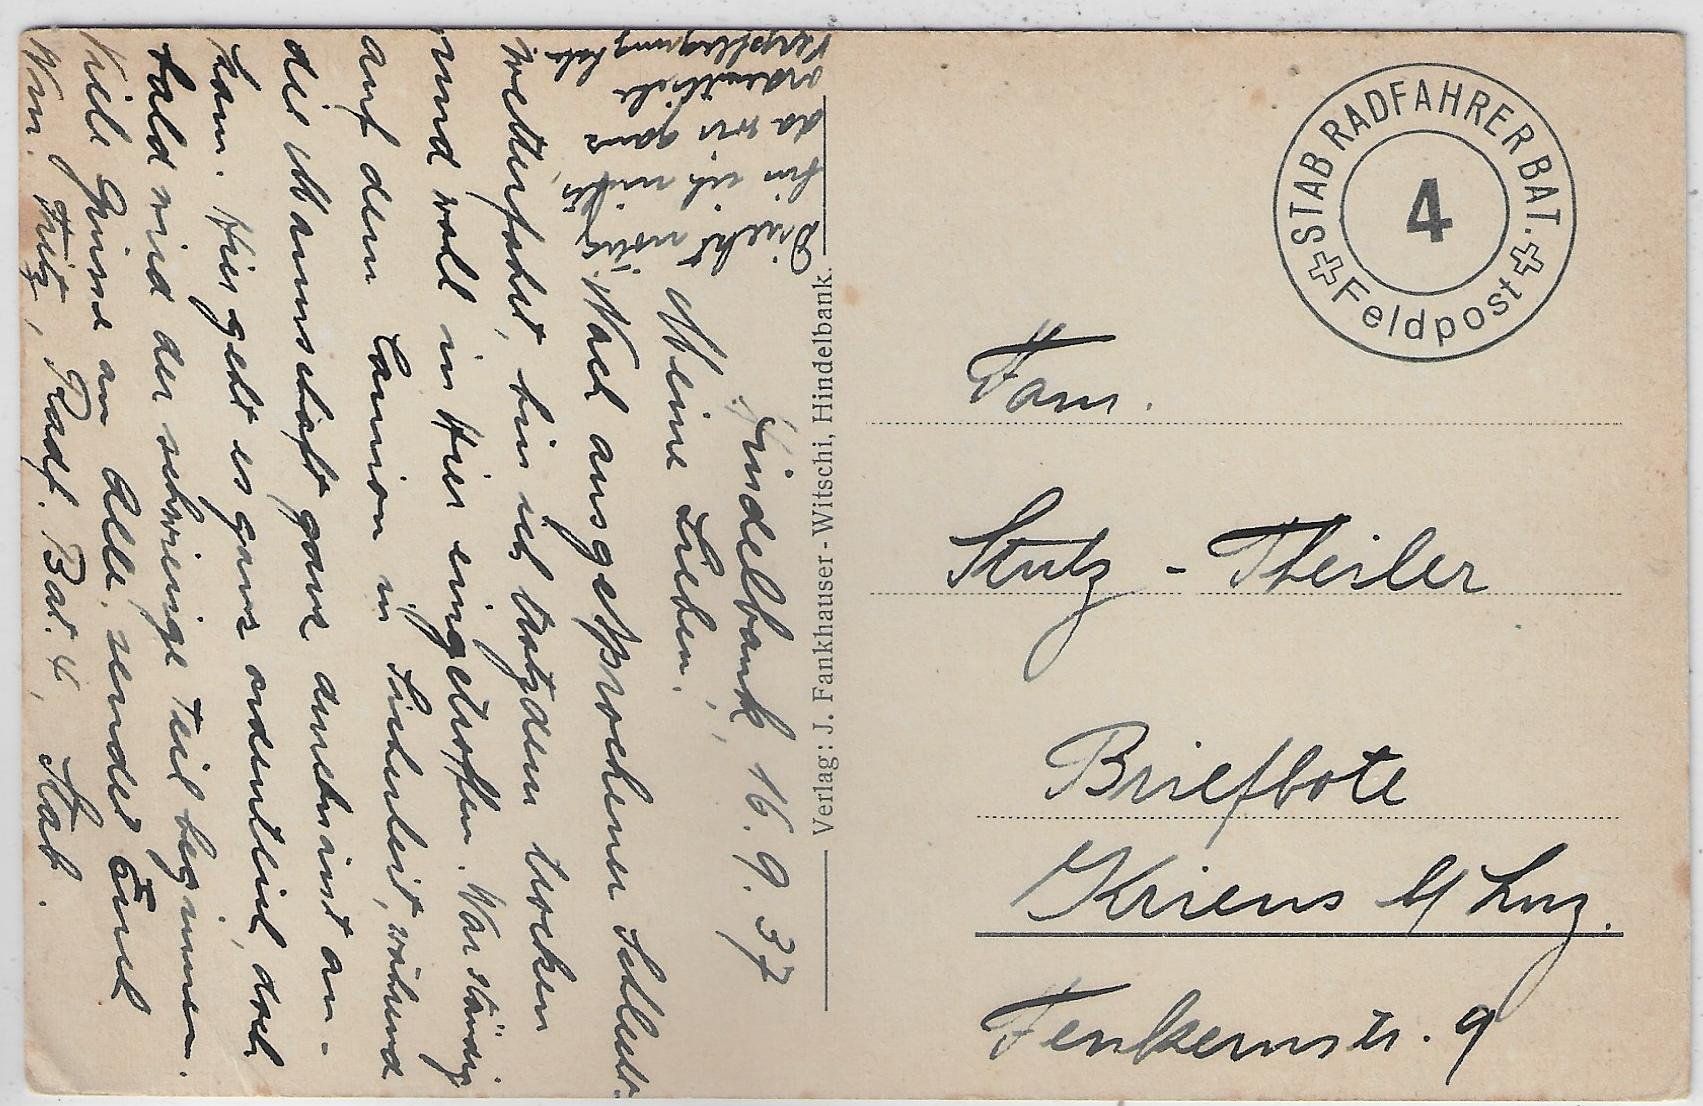 Hindelbank, 16. 9. 37
Meine Lieben!
Nach ausgesprochener Schlecht-
wetterfahrt, bin ich trotzdem trocken
und wohl in hier eingetroffen. War ständig
auf dem Camion in Sicherheit, während
die Mannschaft ganz durchnässt an-
kam. Hier geht es ganz ordentlich, doch
bald wird der schwierige Teil beginnen.
Viele Grüsse an Alle. sendet Euch
Wm. Stutz, Radf. Bat. 4, Stab.
nichts,
da wir ganz
ordentliche
Verpflegung hab.
Verlag: J. Fankhauser-Witschi, Hindelbank.
STAB RADFAHRER BAT.
4
Feldpost
Fam.
Stutz - Theiler
Briefbote
Kriens b/ Luz.
Fenkernstr. 9